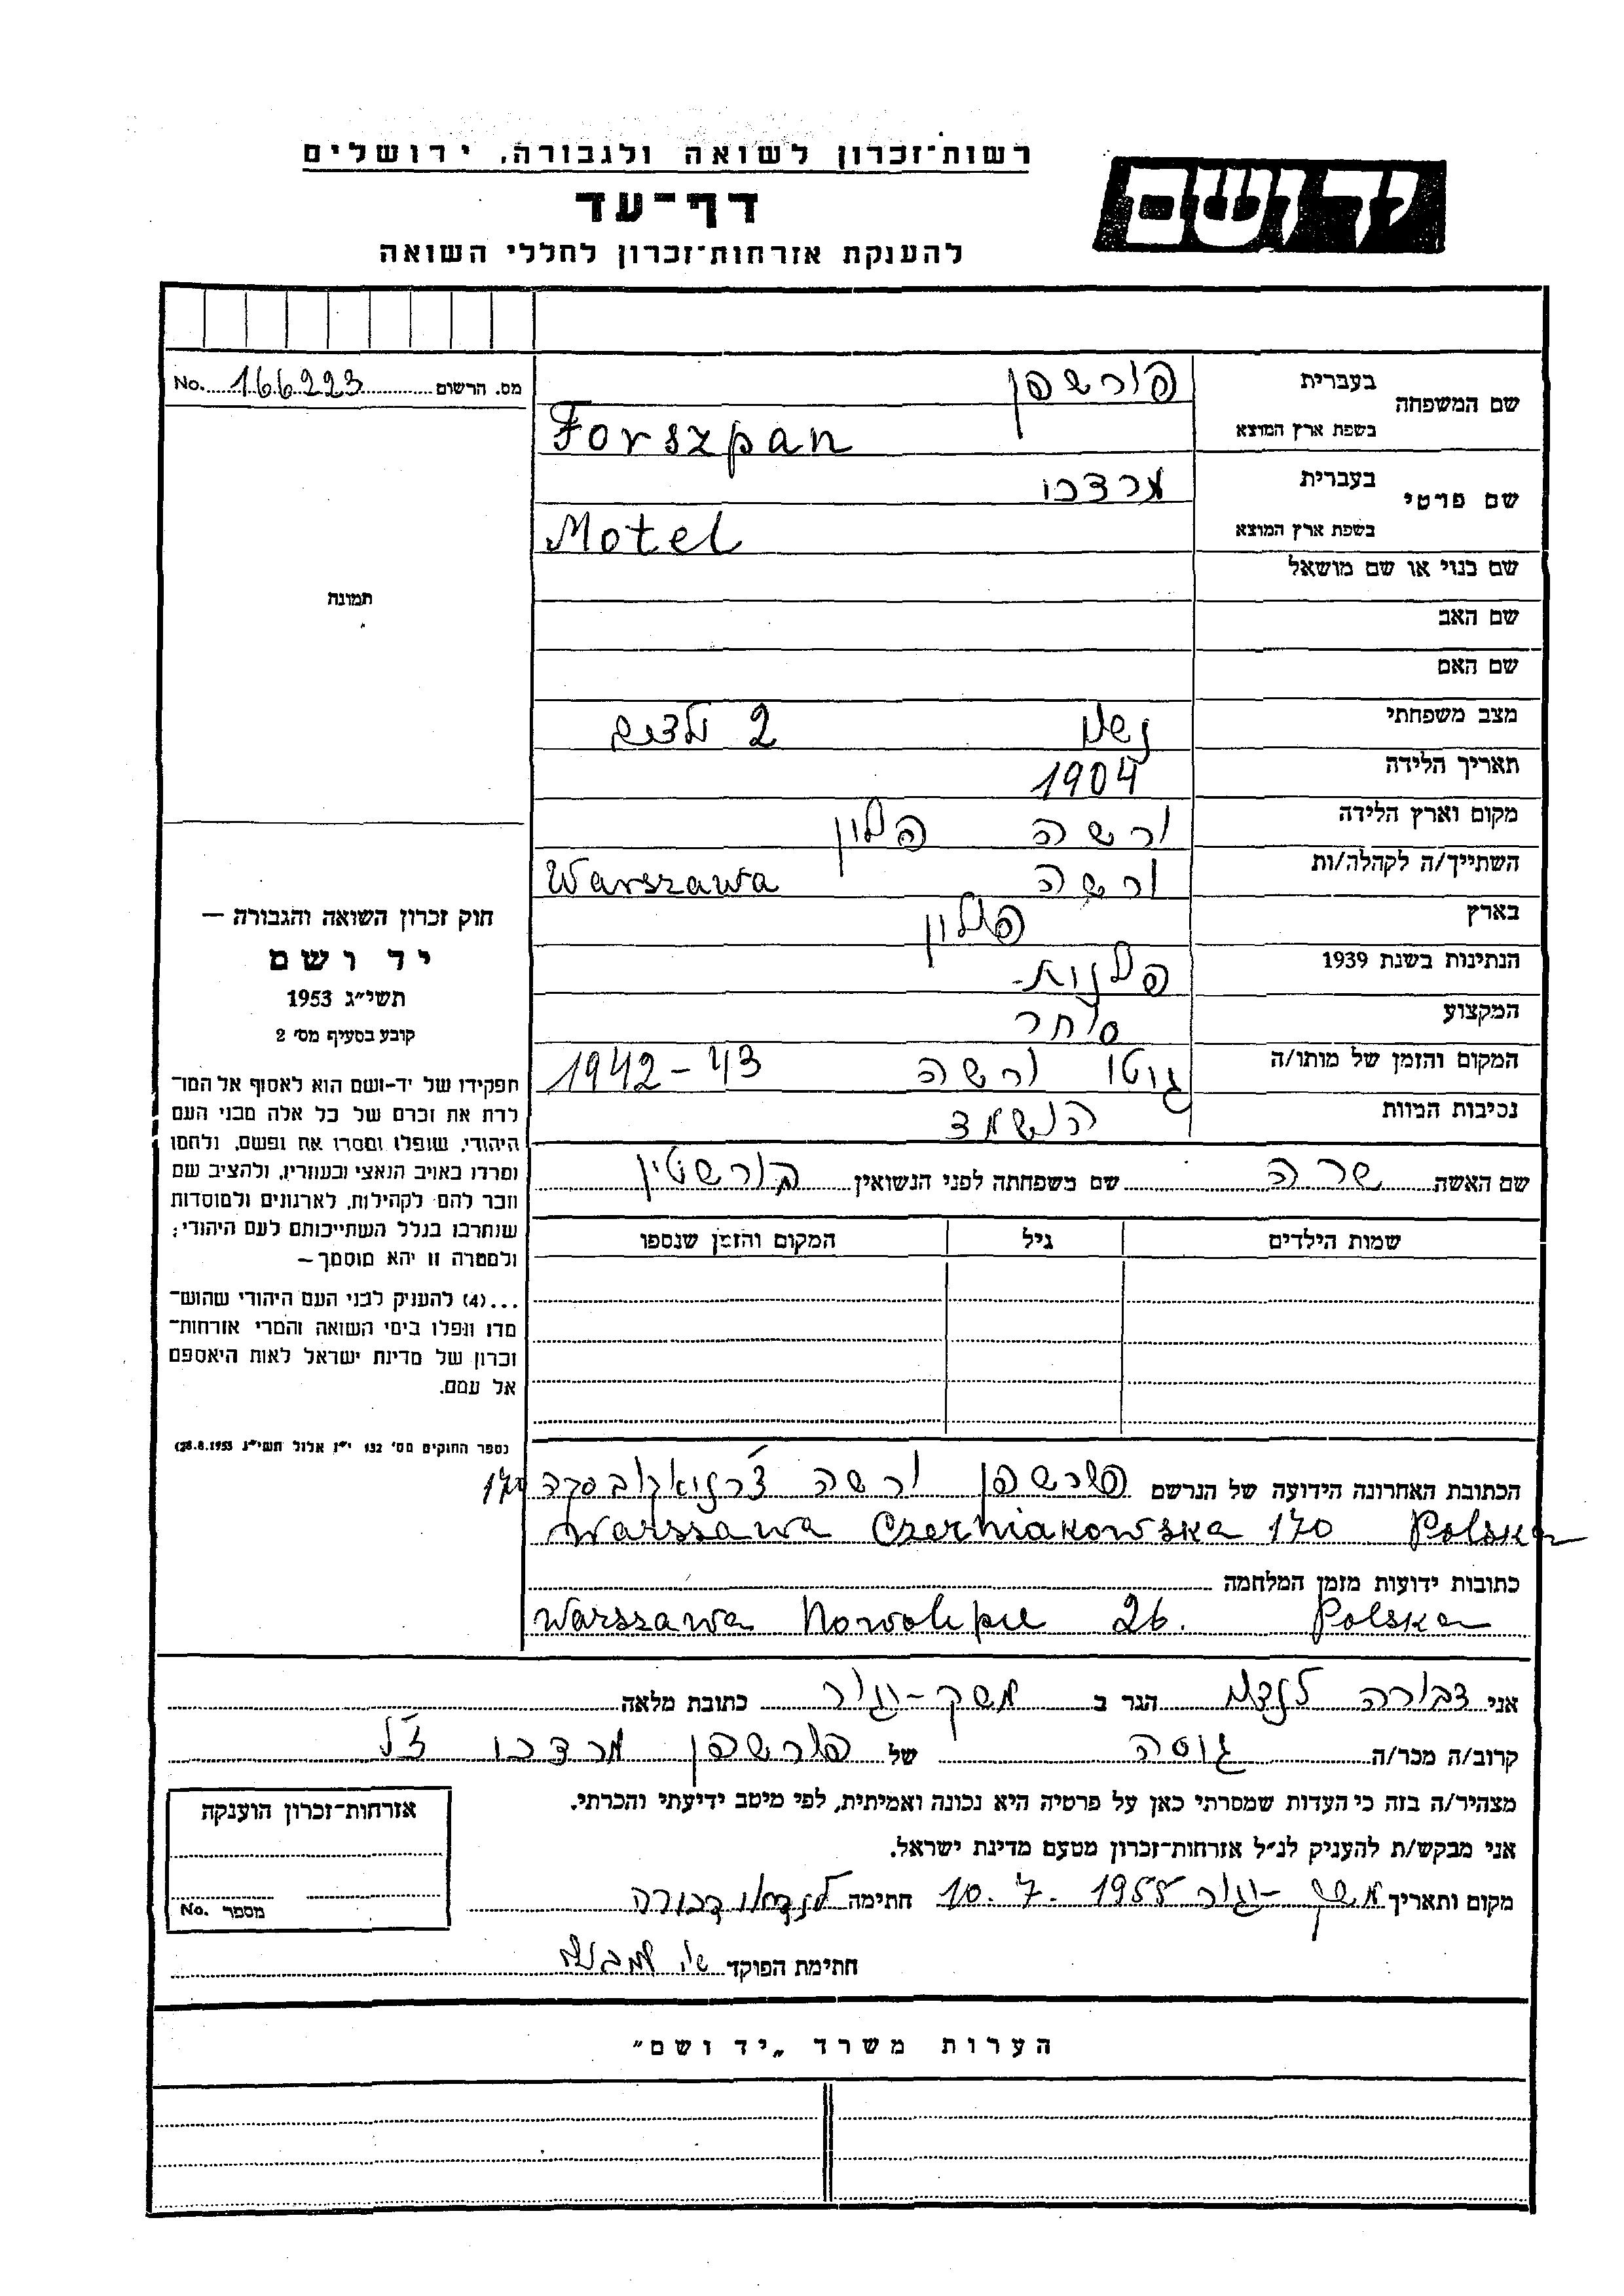 רשות־זכרון לשואה ולגבורה, ירושלים
יד ושם
דף־עד
להענקת אזרחות־זכרון לחללי השואה
שם המשפחה
בעברית
פורשפן
בשפת ארץ המוצא
Forszpan
שם פרטי
בעברית
מרדכי
בשפת ארץ המוצא
Motel
שם בנוי או שם מושאל
שם האב
שם האם
מצב משפחתי נשוי 2 ילדים
תאריך הלידה 1904
מקום וארץ הלידה ורשה פולין
השתייך/ה לקהלה/ות ורשה Warszawa
בארץ פולין
הנתינות בשנת 1939 פולנית-
המקצוע סוחר
המקום והזמן של מותו/ה גיטו ורשה 1942-43
נסיבות המוות הושמד
מס. הרשום 166223 No.
תמונה
חוק זכרון השואה והגבורה —
יד ושם
תשי״ג 1953
קובע בסעיף מס׳ 2
תפקידו של יד-ושם הוא לאסוף אל המו־
לדת את זכרם של כל אלה מבני העם
היהודי, שנפלו ומסרו את נפשם, נלחמו
ומרדו באויב הנאצי ובעוזריו, ולהציב שם
וזכר להם לקהילות, לארגונים ולמוסדות
שנחרבו בגלל השתייכותם לעם היהודי;
ולמטרה זו יהא מוסמך —
...(4) להעניק לבני העם היהודי שהוש־
מדו ונפלו בימי השואה והמרי אזרחות־
זכרון של מדינת ישראל לאות היאספם
אל עמם.
(ספר החוקים מס׳ 132 י״ז אלול תשי״ג 28.8.1953)
שם האשה שרה שם משפחתה לפני הנשואין
שמות הילדים גיל המקום והזמן שנספו
הכתובת האחרונה הידועה של הנרשם פורשפן ורשה צ'רניאקובסקה 170
Warszawa Czerniakowska 170 Polska
כתובות ידועות מזמן המלחמה
Warszawa Nowolipie 26. Polska
אני דבורה לנדאו הגר ב משק-יגור כתובת מלאה
קרוב/ה מכר/ה גיסה של פורשפן מרדכי ז"ל
מצהיר/ה בזה כי העדות שמסרתי כאן על פרטיה היא נכונה ואמיתית, לפי מיטב ידיעתי והכרתי.
אני מבקש/ת להעניק לנ״ל אזרחות־זכרון מטעם מדינת ישראל.
מקום ותאריך משק-יגור 10.7.1955 חתימה לנדאו דבורה
חתימת הפוקד
אזרחות־זכרון הוענקה
מספר No.
הערות משרד „יד ושם״